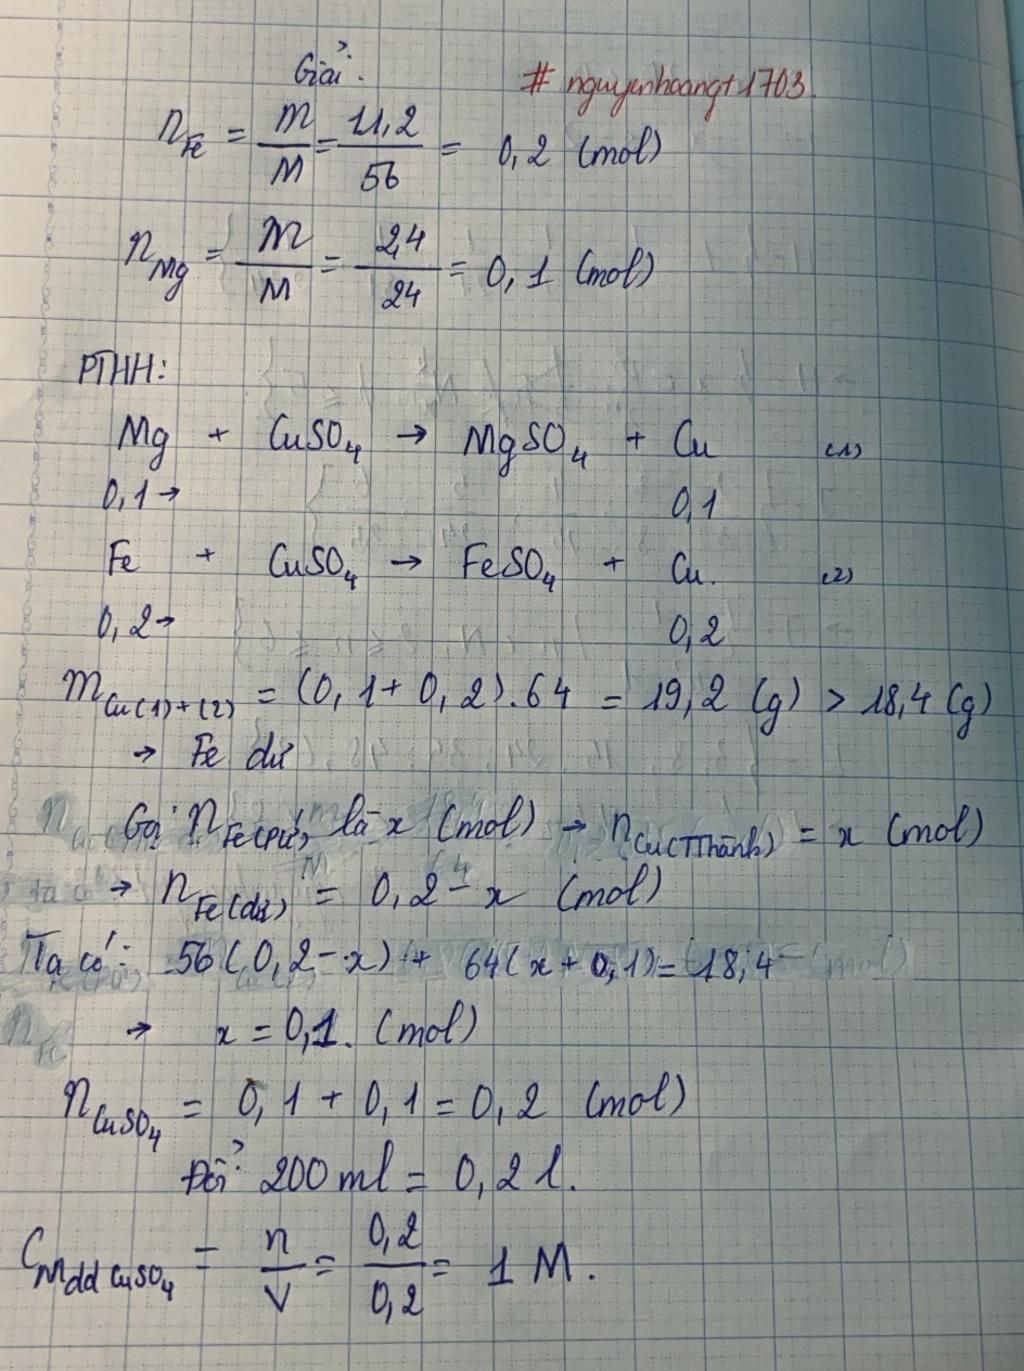 Giải:
# nguyenhoangt1703.
n Fe = m/M = 11,2/56 = 0,2 (mol)
n Mg = m/M = 2,4/24 = 0,1 (mol)
PTHH:
Mg + CuSO4 → MgSO4 + Cu (1)
0,1 → 0,1
Fe + CuSO4 → FeSO4 + Cu. (2)
0,2 → 0,2
m Cu(1)+(2) = (0,1 + 0,2).64 = 19,2 (g) > 18,4 (g)
→ Fe dư
Gọi n Fe(pứ) là x (mol) → n Cu(Tthành) = x (mol)
→ n Fe(dư) = 0,2 - x (mol)
Ta có: 56(0,2 - x) + 64(x + 0,1) = 18,4
→ x = 0,1. (mol)
n CuSO4 = 0,1 + 0,1 = 0,2 (mol)
Đổi 200 ml = 0,2 l.
CM dd CuSO4 = n/V = 0,2/0,2 = 1 M.